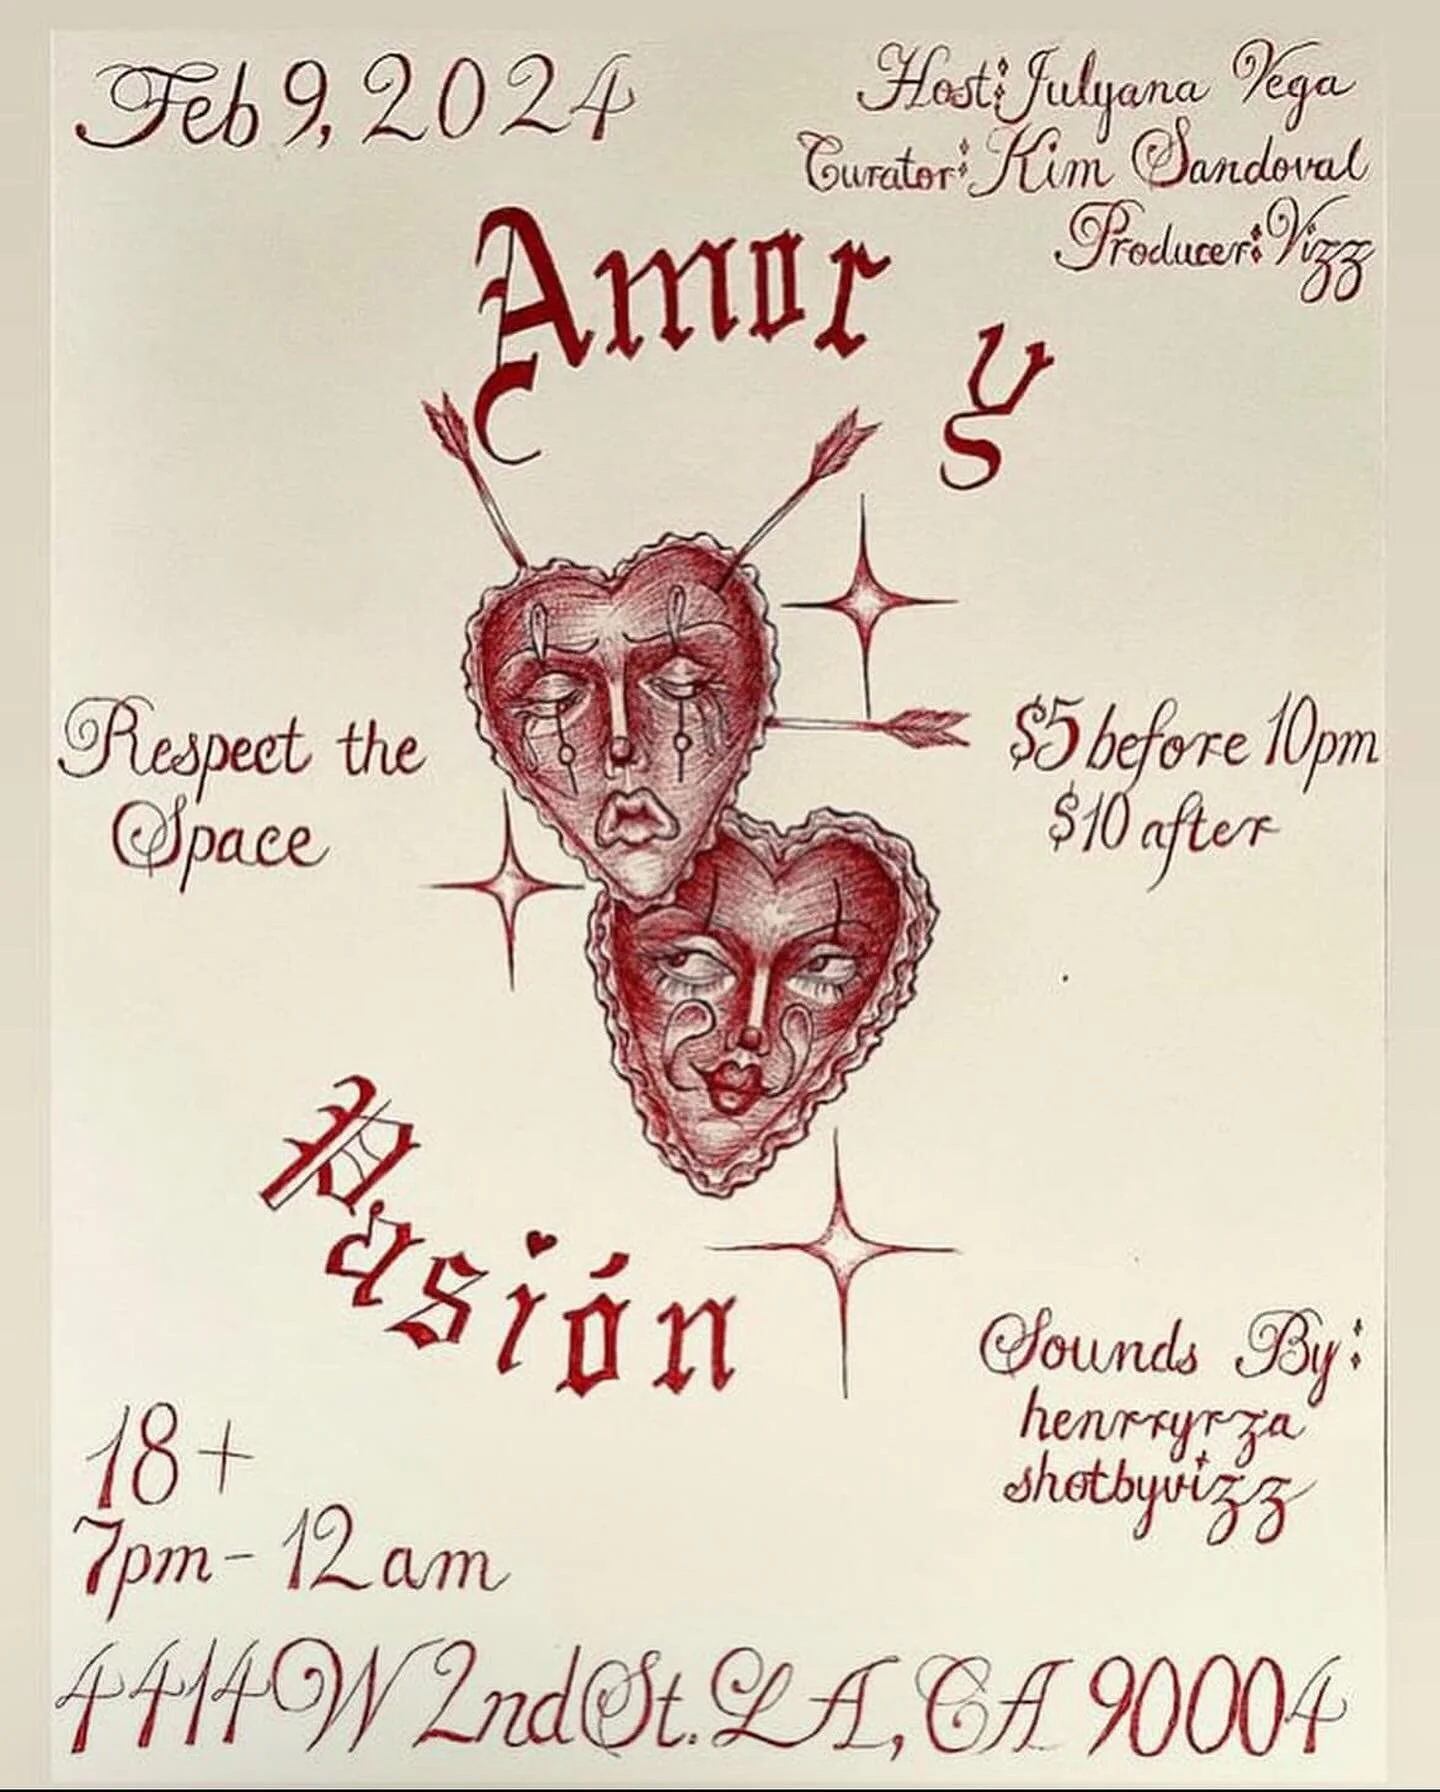 Feb 9, 2024
Host: Julyana Vega
Curator: Kim Sandoval
Producer: Vizz
Amor y
Respect the
Space
$5 before 10pm
$10 after
Pasión
Sounds By:
henrryrza
shotbyvizz
18+
7pm - 12am
4414 W 2nd St. LA, CA 90004